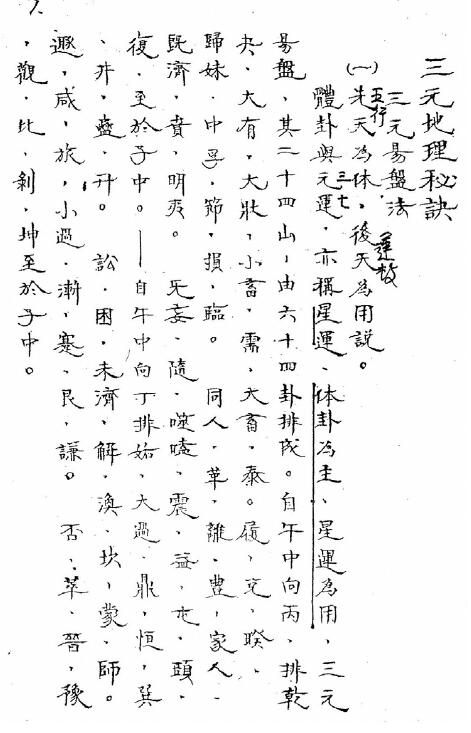 三元地理秘訣
三元易盤法
(一)先天為体,後天為用說。
五行
運枚
體卦與元運,亦稱星運、体卦為主、星運為用,三元
三七
易盤,其二十四山,由六十四卦排成。自午中向丙、排乾
夬、大有,大壯,小畜,需,大畜,泰。履,兌,睽、
歸妹,中孚,節,損,臨。同人,革,離,豊,家人、
旣濟,賁,明夷。旡妄、隨,噬嗑,震,益,屯,頤、
復,至於子中。——自午中向丁排姤,大過,鼎,恒,巽
、井,蠱,升。訟,困,未濟,解,渙,坎,蒙,師。
遯,咸,旅,小過,漸,蹇,艮,謙。否,萃,晉,豫
,觀,比,剝,坤至於子中。